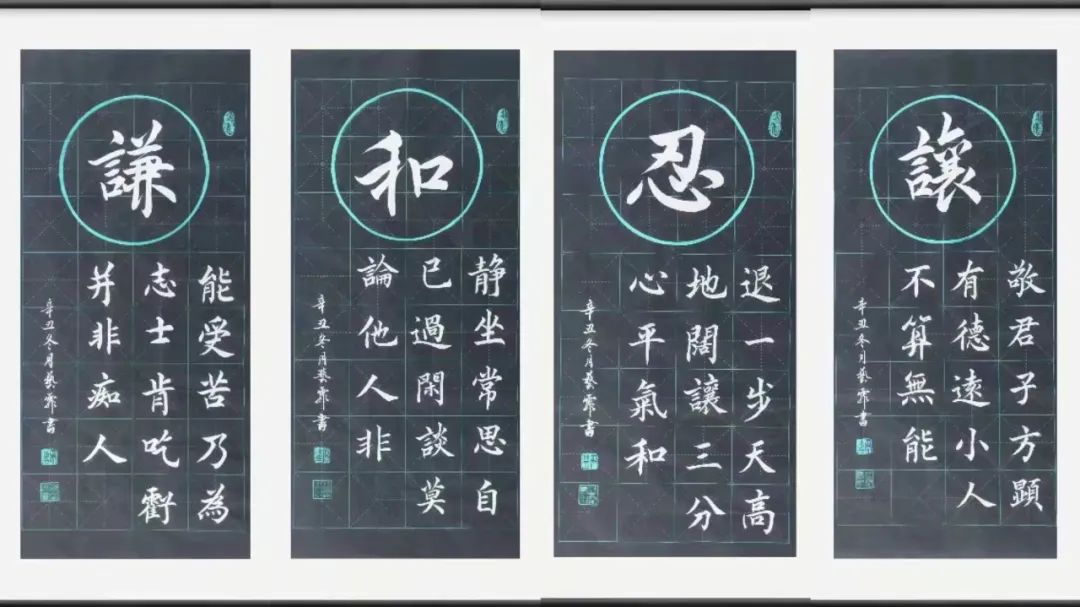 謙
能受苦乃為
志士肯吃虧
并非痴人
辛丑冬月藝霏書
和
静坐常思自
己過閑談莫
論他人非
辛丑冬月藝霏書
忍
退一步天高
地闊讓三分
心平氣和
辛丑冬月藝霏書
讓
敬君子方顕
有德遠小人
不算無能
辛丑冬月藝霏書